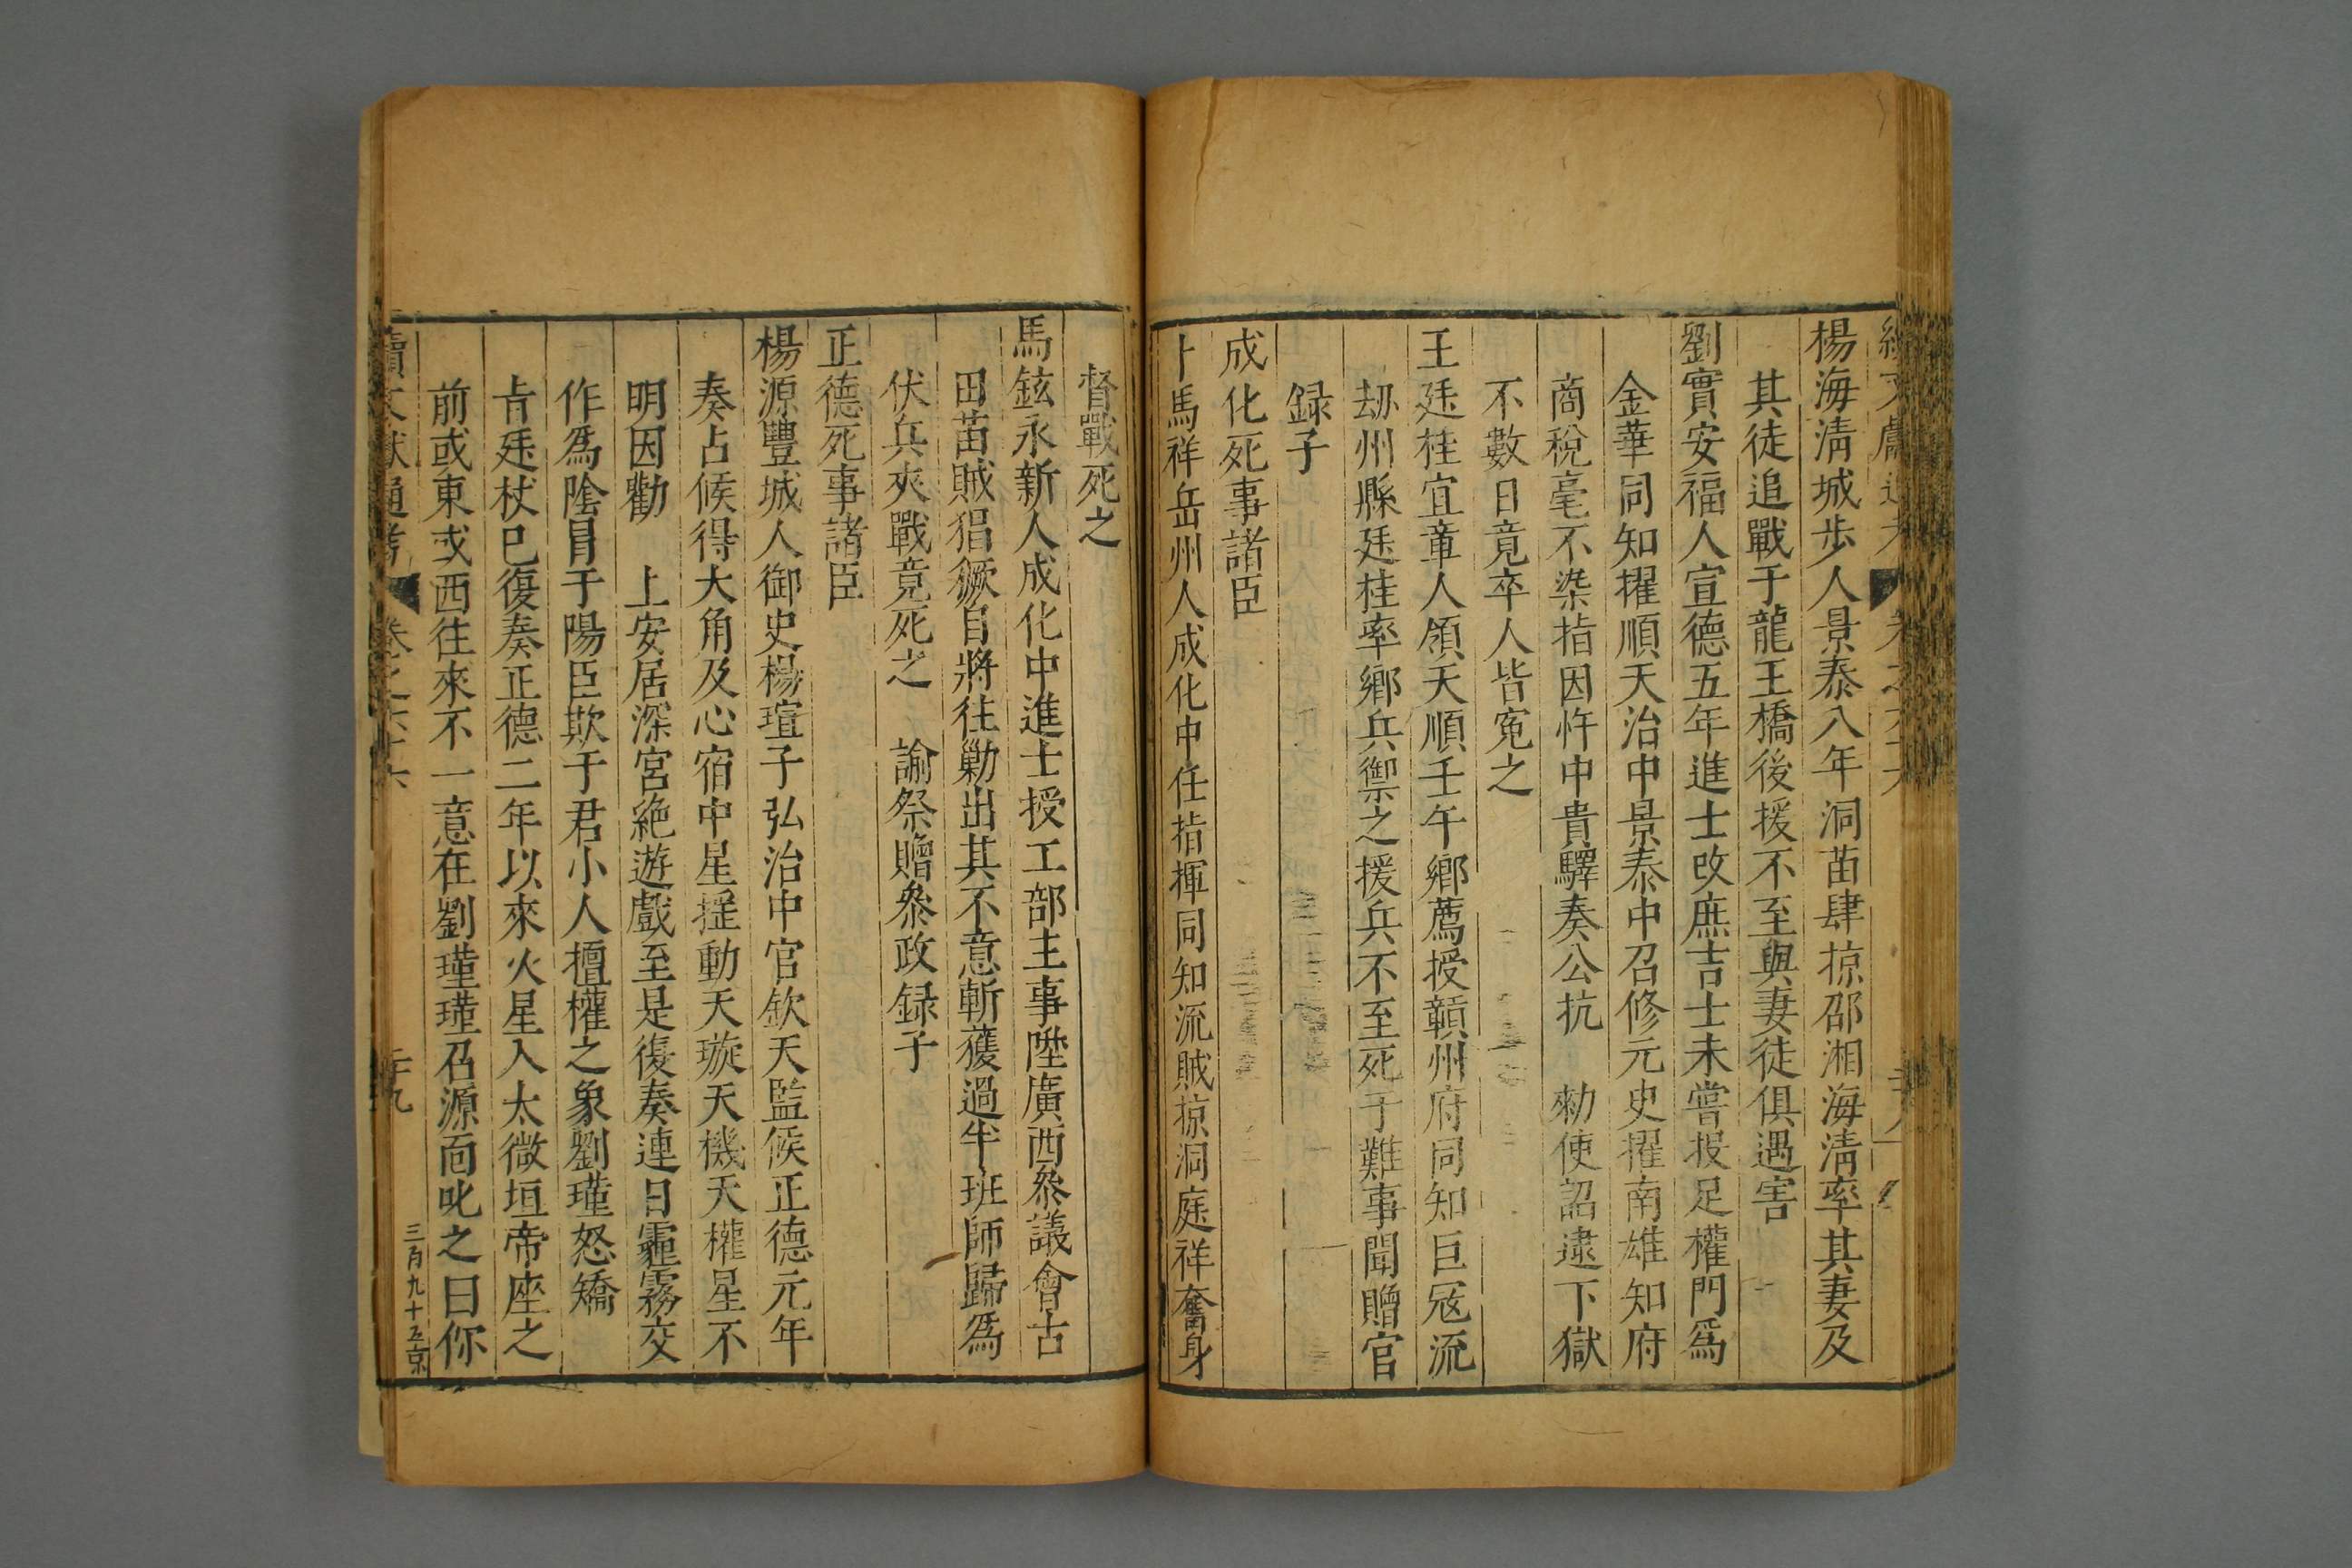 楊海清城步人景泰八年洞苗肆掠邵湘海清率其妻及
其徒追戰于龍王橋後援不至與妻徒俱遇害
劉實安福人宣德五年進士改庶吉士未嘗投足權門爲
金華同知擢順天治中景泰中召修元史擢南雄知府
商稅毫不染指因忤中貴驛奏公抗 勑使詔逮下獄
不數日竟卒人皆寃之
王廷桂宜章人領天順壬午鄉薦授贛州府同知巨寇流
刼州縣廷桂率鄉兵禦之援兵不至死于難事聞贈官
録子
成化死事諸臣
卜馬祥岳州人成化中任指揮同知流賊掠洞庭祥奮身
督戰死之
馬鉉永新人成化中進士授工部主事陞廣西叅議會古
田苗賊猖獗自將往勦出其不意斬獲過半班師歸爲
伏兵夾戰竟死之 諭祭贈叅政録子
正德死事諸臣
楊源豐城人御史楊瑄子弘治中官欽天監候正德元年
奏占候得大角及心宿中星揺動天璇天機天權星不
明因勸 上安居深宮絶遊戲至是復奏連日霾霧交
作爲陰冒于陽臣欺于君小人擅權之象劉瑾怒矯
㫖廷杖已復奏正德二年以來火星入太微垣帝座之
前或東或西往來不一意在劉瑾瑾召源面叱之曰你
續文獻通考 卷之六十六 二十九
三百九十五 京